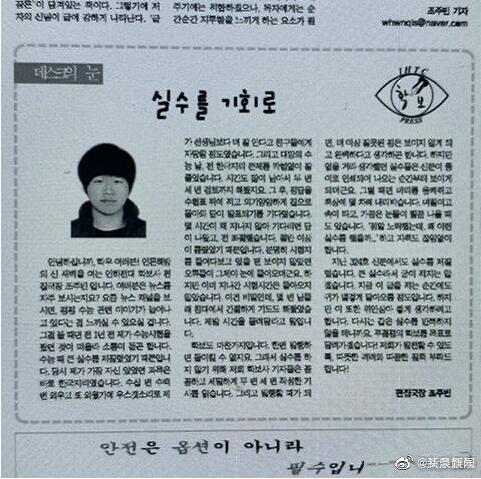 꿈은'이 담겨있는 책이다. 그렇기에 저
자의 신념이 글에 강하게 나타난다. '글
주기에는 적합하겠으나, 독자에게는 순
간순간 지루함을 느끼게 하는 요소가 된
조주빈 기자
whwnqls@naver.com
데스크의 눈
실수를 기회로
IHTC
학보
PRESS
안녕하십니까, 학우 여러분! 인문해방
의 신 새벽을 여는 인하전대 학보사 편
집국장 조주빈 입니다. 여러분은 뉴스를
자주 보시는지요? 요즘 뉴스 채널을 보
시면, 수능 관련 이야기가 늘어나
고 있다는 걸 느끼실 수 있으실 겁니다.
그걸 볼 때면 전 1년 전 제가 수능시험을
쳤던 것이 떠올라 소름이 돋곤 합니다.
수능 때 큰 실수를 저질렀었기 때문입니
다. 당시 제가 가장 자신 있었던 과목은
바로 한국지리였습니다. 수십 번 수백
번 외우고 또 외웠기에 우스갯소리로 제
가 선생님보다 더 잘 안다고 친구들에게
자랑할 정도였습니다. 그리고 대망의 수
능 날, 전 한국지리 문제를 막힘없이 잘
풀었습니다. 시간도 많이 남아서 두 번
세 번 검토까지 해봤지요. 그 후, 정답을
수험표 뒤에 적고 의기양양하게 집으로
돌아와 답이 발표되기를 기다렸습니다.
몇 시간이 채 지나지 않아 기다리던 답
이 나왔고, 전 좌절했습니다. 절반 이상
이 틀렸었기 때문입니다. 분명히 시험지
를 들여다보고 있을 땐 보이지 않았던
오류들이 그제야 눈에 들어오더군요. 하
지만 이미 지나간 시험시간은 돌아오지
않았습니다. 이건 비밀인데, 몇 번 남몰
래 침대에서 간절하게 기도도 해봤었습
니다. 제발 시간을 돌려달라고 말입니
다.
학보도 마찬가지입니다. 한번 발행하
면 돌이킬 수 없지요. 그래서 실수를 하
지 않기 위해 저희 학보사 기자들은 꼼
꼼하고 세밀하게 두 번 세 번 작성한 기
사를 읽습니다. 그리고 발행할 때가 되
면, 더 이상 잘못된 점은 보이지 않게 되
고 완벽하다고 생각하곤 합니다. 하지만
없을 거라 생각했던 실수들은 신문이 종
이로 인쇄되어 나오는 순간부터 보이게
되더군요. 그럴 때면 머리를 움켜쥐고
책상에 몇 차례 내리박습니다. 머릿이고
속이 타고, 가끔은 눈물이 찔끔 나올 때
도 있습니다. '정말 노력했는데, 왜 이런
실수를 했을까...' 하고 자책도 끊임없이
합니다.
지난 204호 신문에서도 실수를 저질렀
습니다. 큰 실수라서 굳이 적지는 않
겠습니다. 지금 이 글을 적는 순간에도
귀가 빨갛게 달아오를 정도입니다. 하지
만 이 또한 위안삼아 좋게 생각하려고
합니다. 다시는 같은 실수를 반복하지
않을 테니까요. 무결점의 학보를 목표로
달려가겠습니다! 저희가 발전할 수 있도
록, 따뜻한 격려와 따끔한 질책 부탁드
립니다!
편집국장 조주빈
안전은 옵션이 아니라
필수입니
@新京新闻